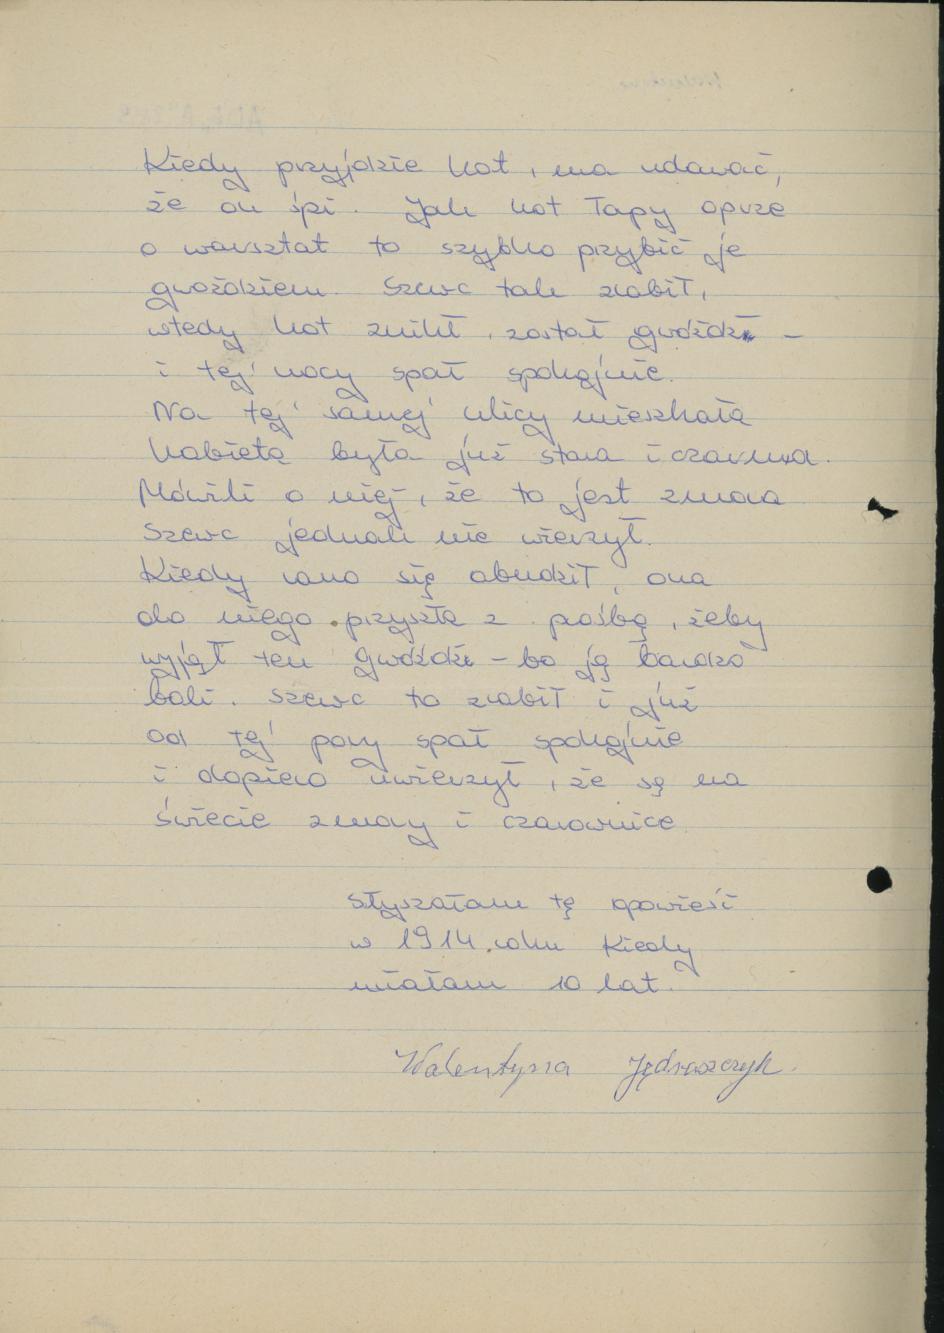 Kiedy przyjdzie kot, ma udawać,
że on śpi. Jak kot łapy oprze
o warsztat to szybko przybić je
gwoździem. Szewc tak zrobił,
wtedy kot znikł, został gwóźdź –
i tej nocy spał spokojnie.
Na tej samej ulicy mieszkała
kobieta była już stara i czarna.
Mówili o niej, że to jest zmora
Szewc jednak nie wierzył.
Kiedy rano się obudził, ona
do niego przyszła z prośbą, żeby
wyjął ten gwóźdź – bo ją bardzo
boli. Szewc to zrobił i już
od tej pory spał spokojnie
i dopiero uwierzył, że są na
świecie zmory i czarownice
słyszałam tę opowieść
w 1914 roku kiedy
miałam 10 lat.
Walentyna Jędraszczyk.